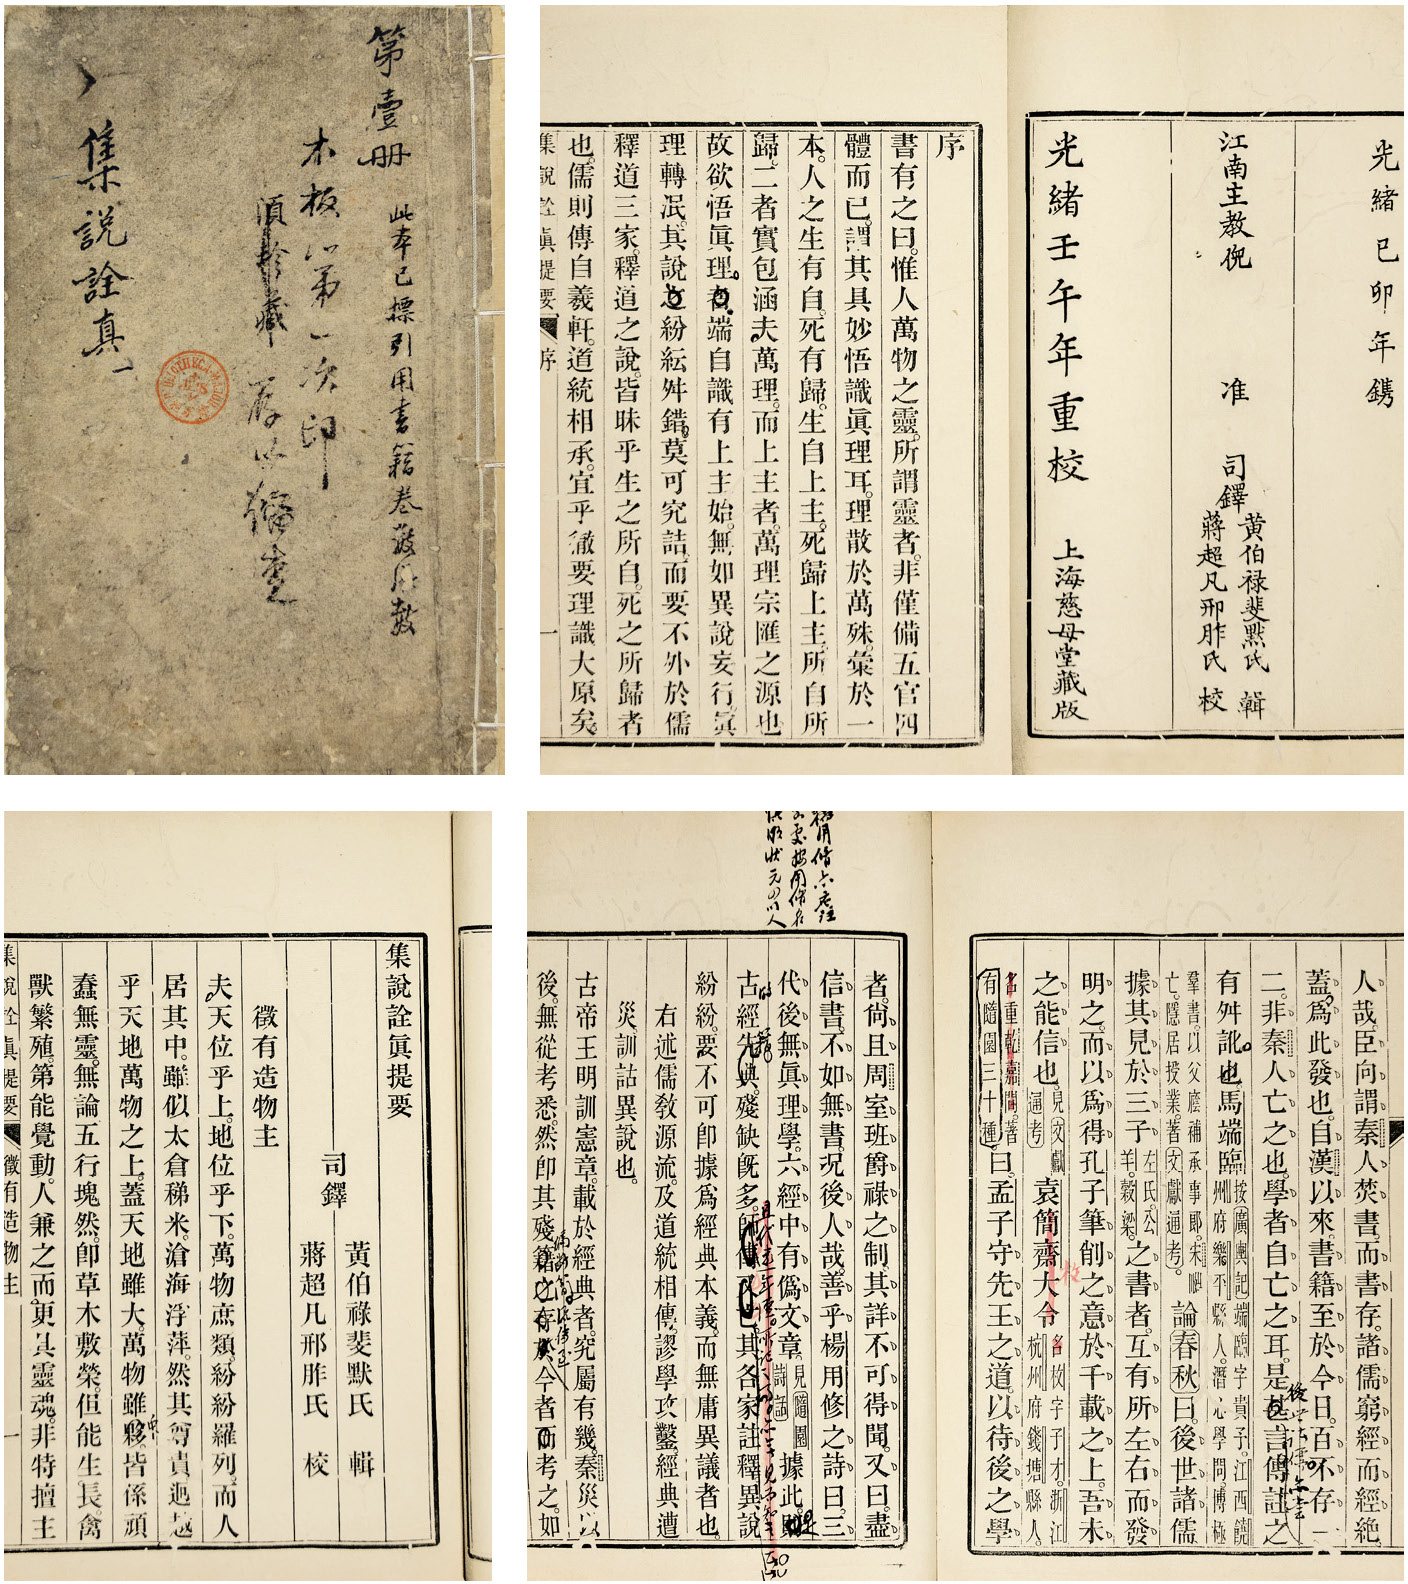 第壹册
此本已標引用書籍卷數頁數
木板心第一次印
須珍藏
存以備查
集說詮真一
光緒己卯年鐫
江南主教倪 准
司鐸
黃伯禄斐默氏 輯
蔣超凡邢胙氏 校
光緒壬午年重校 上海慈母堂藏版
序
書有之曰。惟人萬物之靈。所謂靈者。非僅備五官四
體而已。謂其具妙悟識眞理耳。理散於萬殊。彙於一
本。人之生有自。死有歸。生自上主。死歸上主。所自所
歸。二者實包涵夫萬理。而上主者。萬理宗匯之源也
故欲悟眞理。者端自識有上主始。無如異說妄行。眞
理轉泯。其說之紛紜舛錯。莫可究詰。而要不外於儒
釋道三家。釋道之說。皆昧乎生之所自。死之所歸者
也。儒則傳自羲軒。道統相承。宜乎徹要理識大原矣。
集說詮眞提要 序 一
集說詮眞提要
司鐸
黃伯祿斐默氏 輯
蔣超凡邢胙氏 校
徵有造物主
夫天位乎上。地位乎下。萬物庶類。紛紛羅列。而人
居其中。雖似太倉稊米。滄海浮萍。然其尊貴迥越
乎天地萬物之上。蓋天地雖大。萬物雖夥。皆係頑
蠢無靈。無論五行塊然。卽草木敷榮。但能生長。禽
獸繁殖。第能覺動。人兼之而更具靈魂。非特擅主
集說詮眞提要 徵有造物主 一
人哉。臣向謂秦人焚書。而書存。諸儒窮經而經絶。
蓋爲此發也。自漢以來。書籍至於今日。百不存一
二。非秦人亡之也。學者自亡之耳。是言傳註之
有舛訛也。馬端臨按廣輿記端臨字貴子。江西饒州府樂平縣人。潛心學問。博極
羣書。以父廕補承事郎。宋亡。隱居授業。著文獻通考。論春秋曰。後世諸儒
據其見於三子左氏。公羊。穀梁。之書者。互有所左右而發
明之。而以爲得孔子筆削之意於千載之上。吾未
之能信也。見文獻通考 袁簡齋大令名枚字子才。浙江杭州府錢塘縣人。
名重乾嘉間。著有隨園三十種。曰。孟子守先王之道。以待後之學
者。尙且周室班爵祿之制。其詳不可得聞。又曰。盡
信書。不如無書。况後人哉。善乎楊用修之詩曰。三
代後無眞理學。六經中有僞文章。見隨園詩話 據此。則
古經先典。殘缺旣多。其各家註釋異說
紛紛。要不可卽據爲經典本義。而無庸異議者也。
右述儒敎源流。及道統相傳。謬學攻鑿。經典遭
災。訓詁異說也。
古帝王明訓憲章。載於經典者。究屬有幾。秦災以
後。無從考悉。然卽其殘籍之存於今者而考之。如